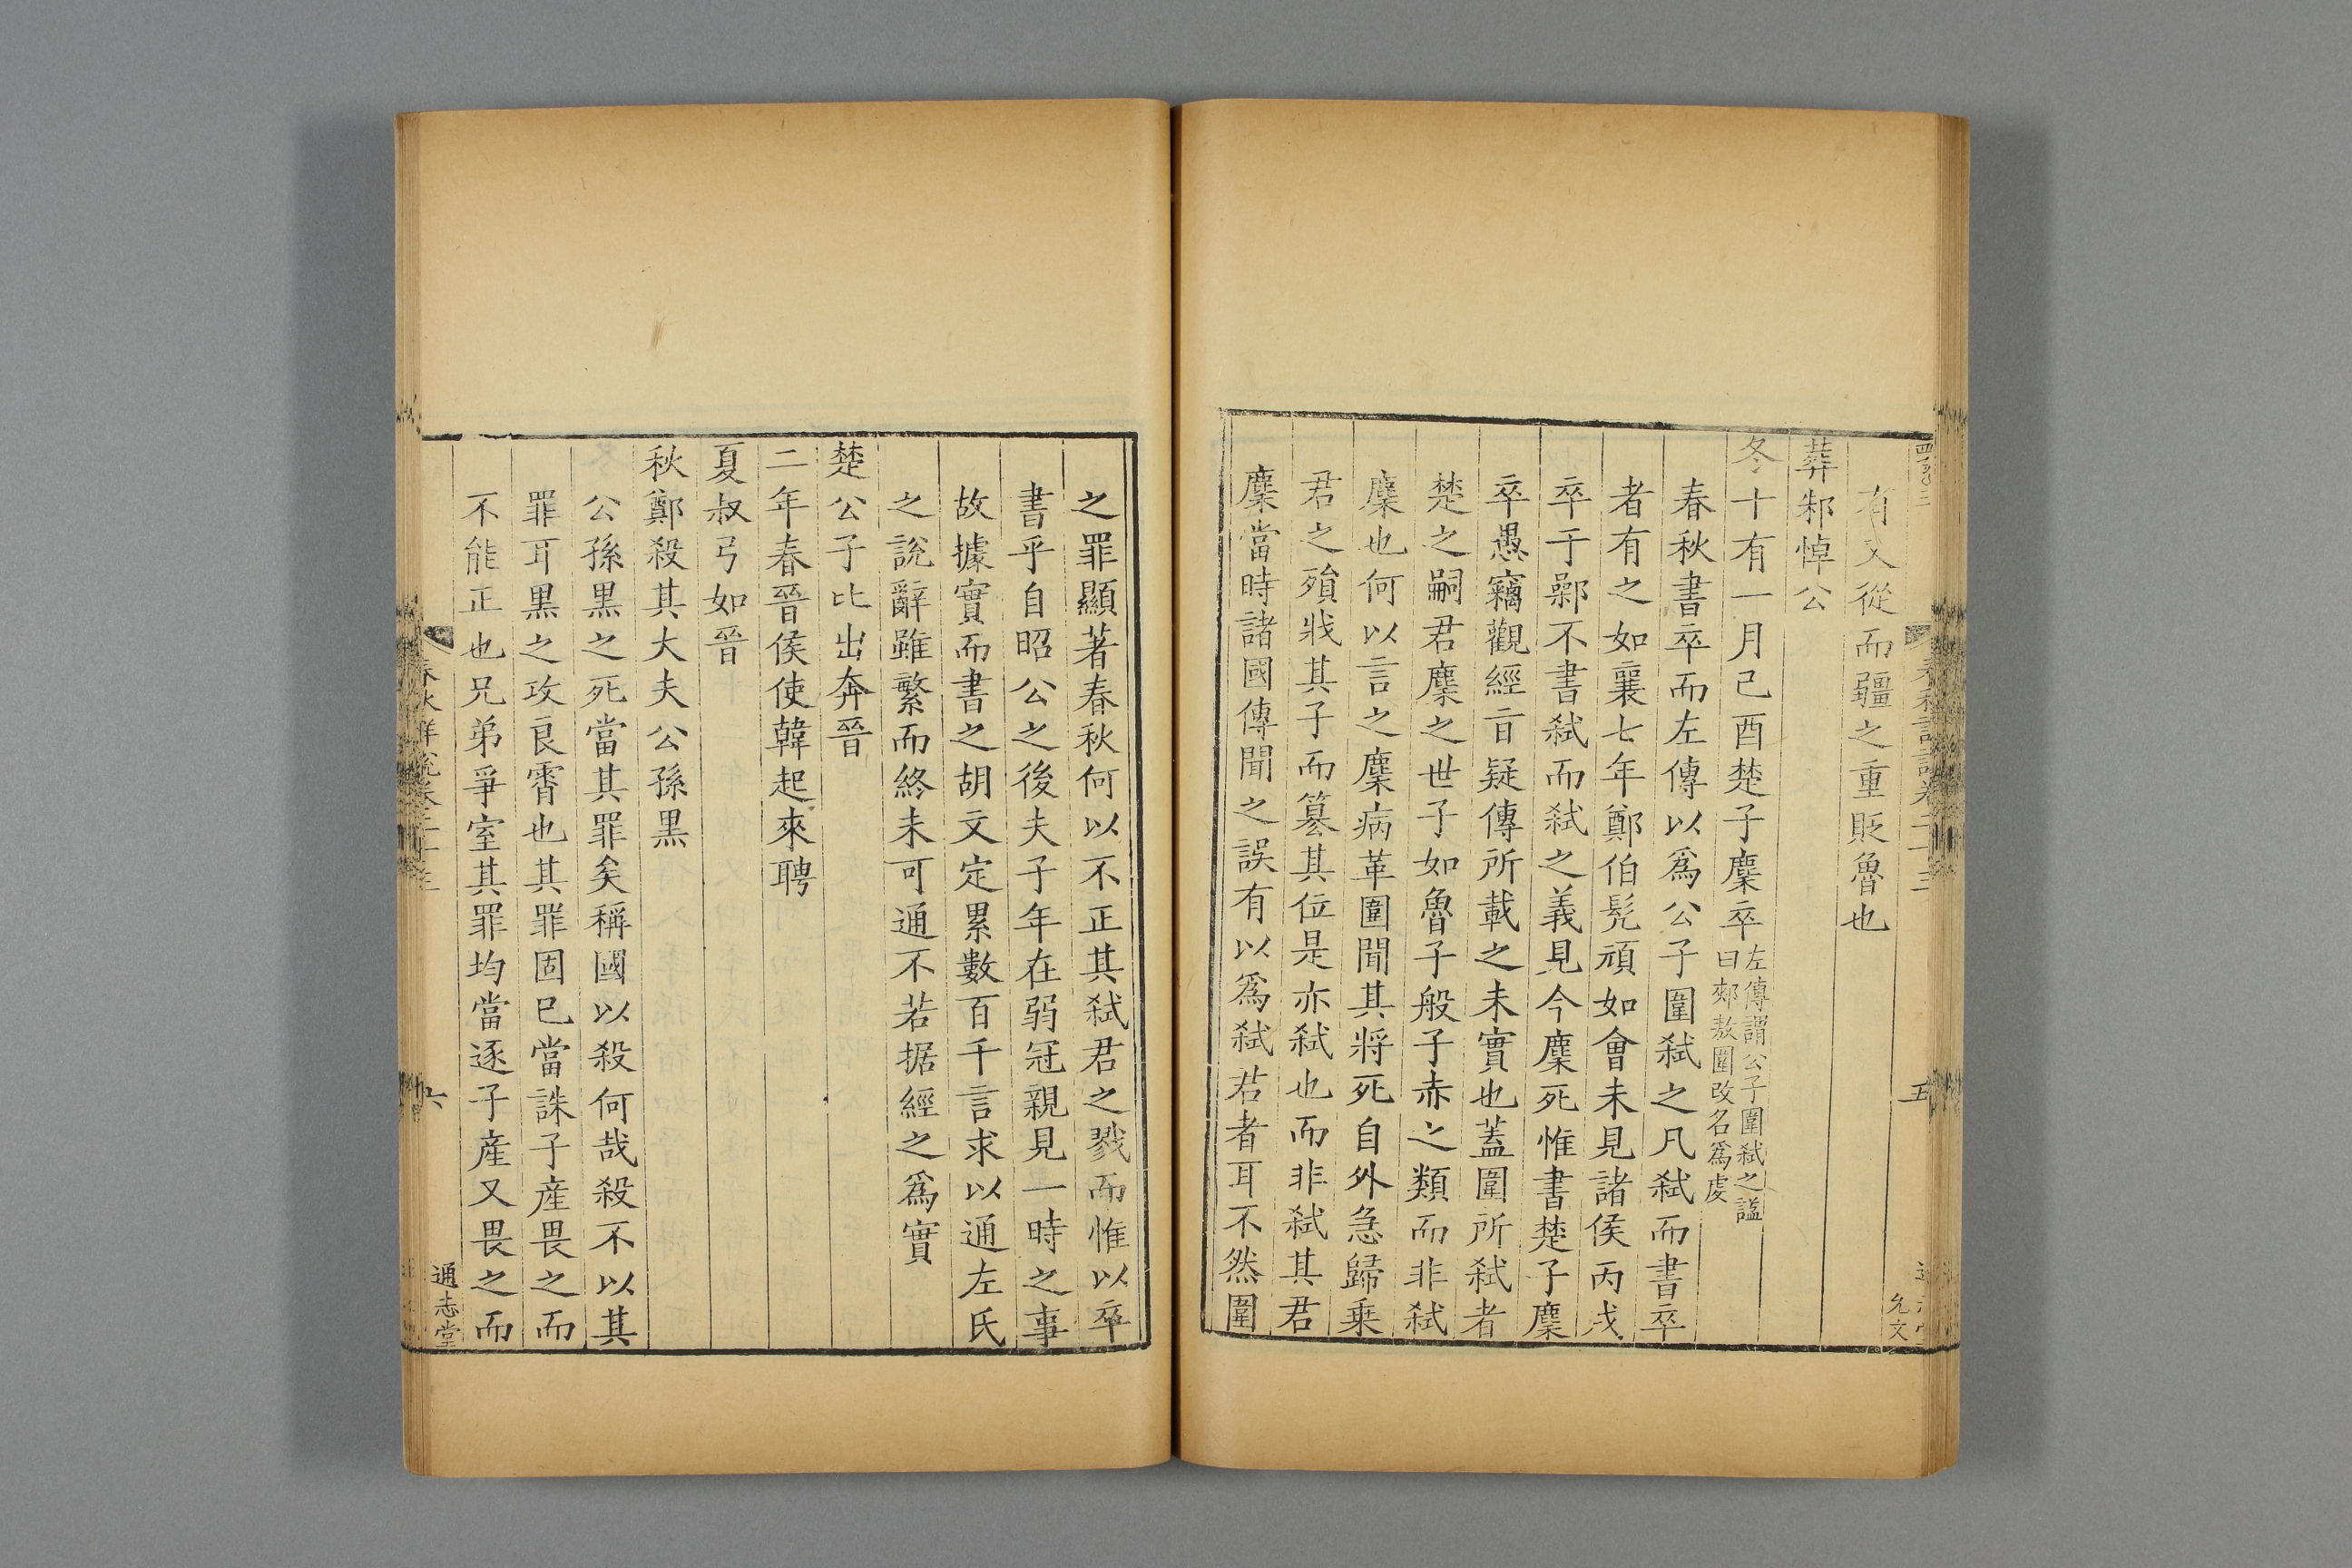 有又從而疆之重貶魯也
葬邾悼公
冬十有一月己酉楚子麇卒左傳謂公子圍弑之諡曰郟敖圍改名爲虔
春秋書卒而左傳以爲公子圍弑之凡弑而書卒
者有之如襄七年鄭伯髠頑如會未見諸侯丙戌
卒于鄵不書弑而弑之義見今麇死惟書楚子麇
卒愚竊觀經㫖疑傳所載之未實也蓋圍所弑者
楚之嗣君麇之世子如魯子般子赤之類而非弑
麇也何以言之麇病革圍聞其將死自外急歸乗
君之殞戕其子而簒其位是亦弑也而非弑其君
麇當時諸國傳聞之誤有以爲弑若者耳不然圍
五
允文
之罪顯著春秋何以不正其弑君之戮而惟以卒
書乎自昭公之後夫子年在弱冠親見一時之事
故據實而書之胡文定累數百千言求以通左氏
之說辭雖繁而終未可通不若据經之爲實
楚公子比出奔晉
二年春晉侯使韓起來聘
夏叔弓如晉
秋鄭殺其大夫公孫黑
公孫黑之死當其罪矣稱國以殺何哉殺不以其
罪耳黑之攻良霄也其罪固巳當誅子産畏之而
不能正也兄弟爭室其罪均當逐子産又畏之而
春秋詳說卷二十三
六
通志堂